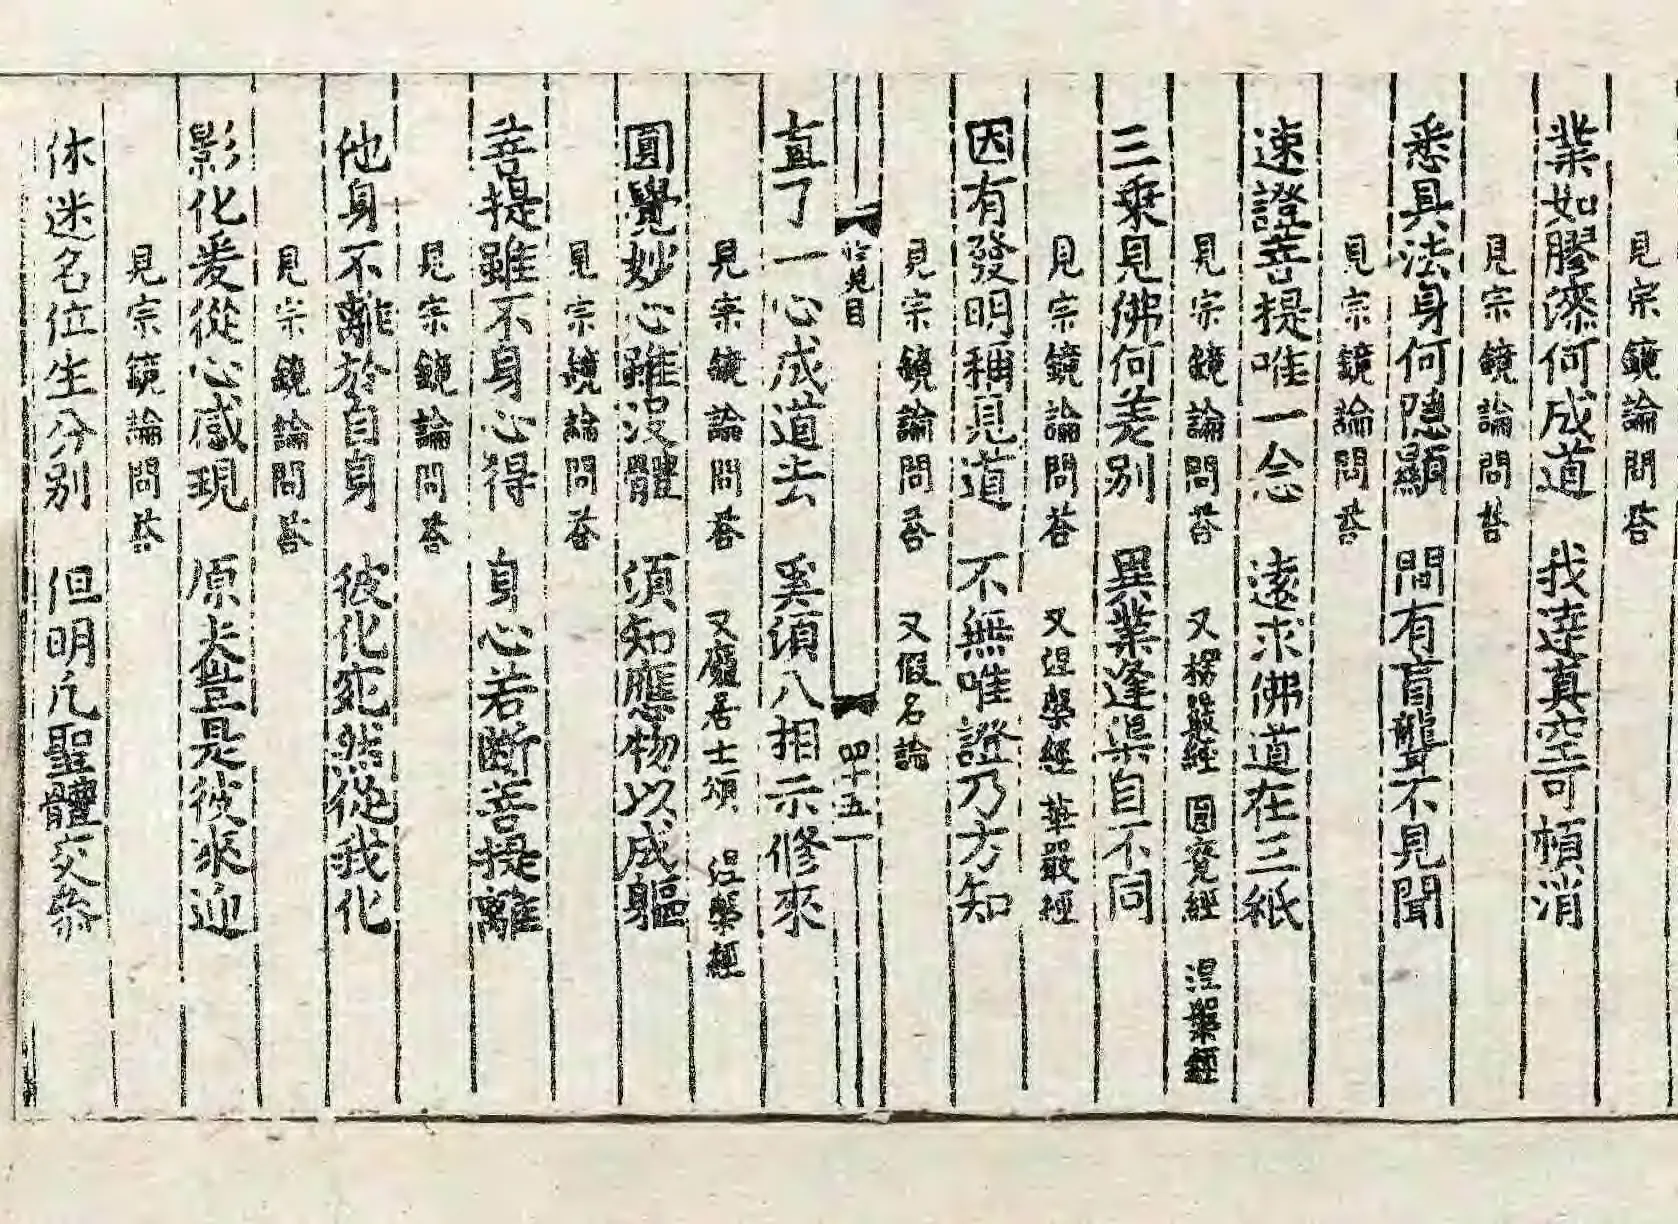 見宗鏡論問荅
業如膠漆何成道　我達真空可頓消
見宗鏡論問荅
悉具法身何隱顯　間有盲聾不見聞
見宗鏡論問荅
速證菩提唯一念　遠求佛道在三祇
見宗鏡論問荅　又楞嚴經　圓覺經　涅槃經
三乘見佛何差别　異業逢渠自不同
見宗鏡論問荅　又涅槃經　華嚴經
因有發明稱見道　不無唯證乃方知
見宗鏡論問荅　又假名論
目　四十五
直了一心成道去　奚須八相示修來
見宗鏡論問荅　又龐居士頌　涅槃經
圓覺妙心雖没體　須知應物以成軀
見宗鏡論問荅
菩提雖不身心得　身心若斷菩提離
見宗鏡論問荅
他身不離於自身　彼化宛然從我化
見宗鏡論問荅
影化爰從心感現　原夫豈是彼來迎
見宗鏡論問荅
休迷名位生分别　但明凡聖體交叅